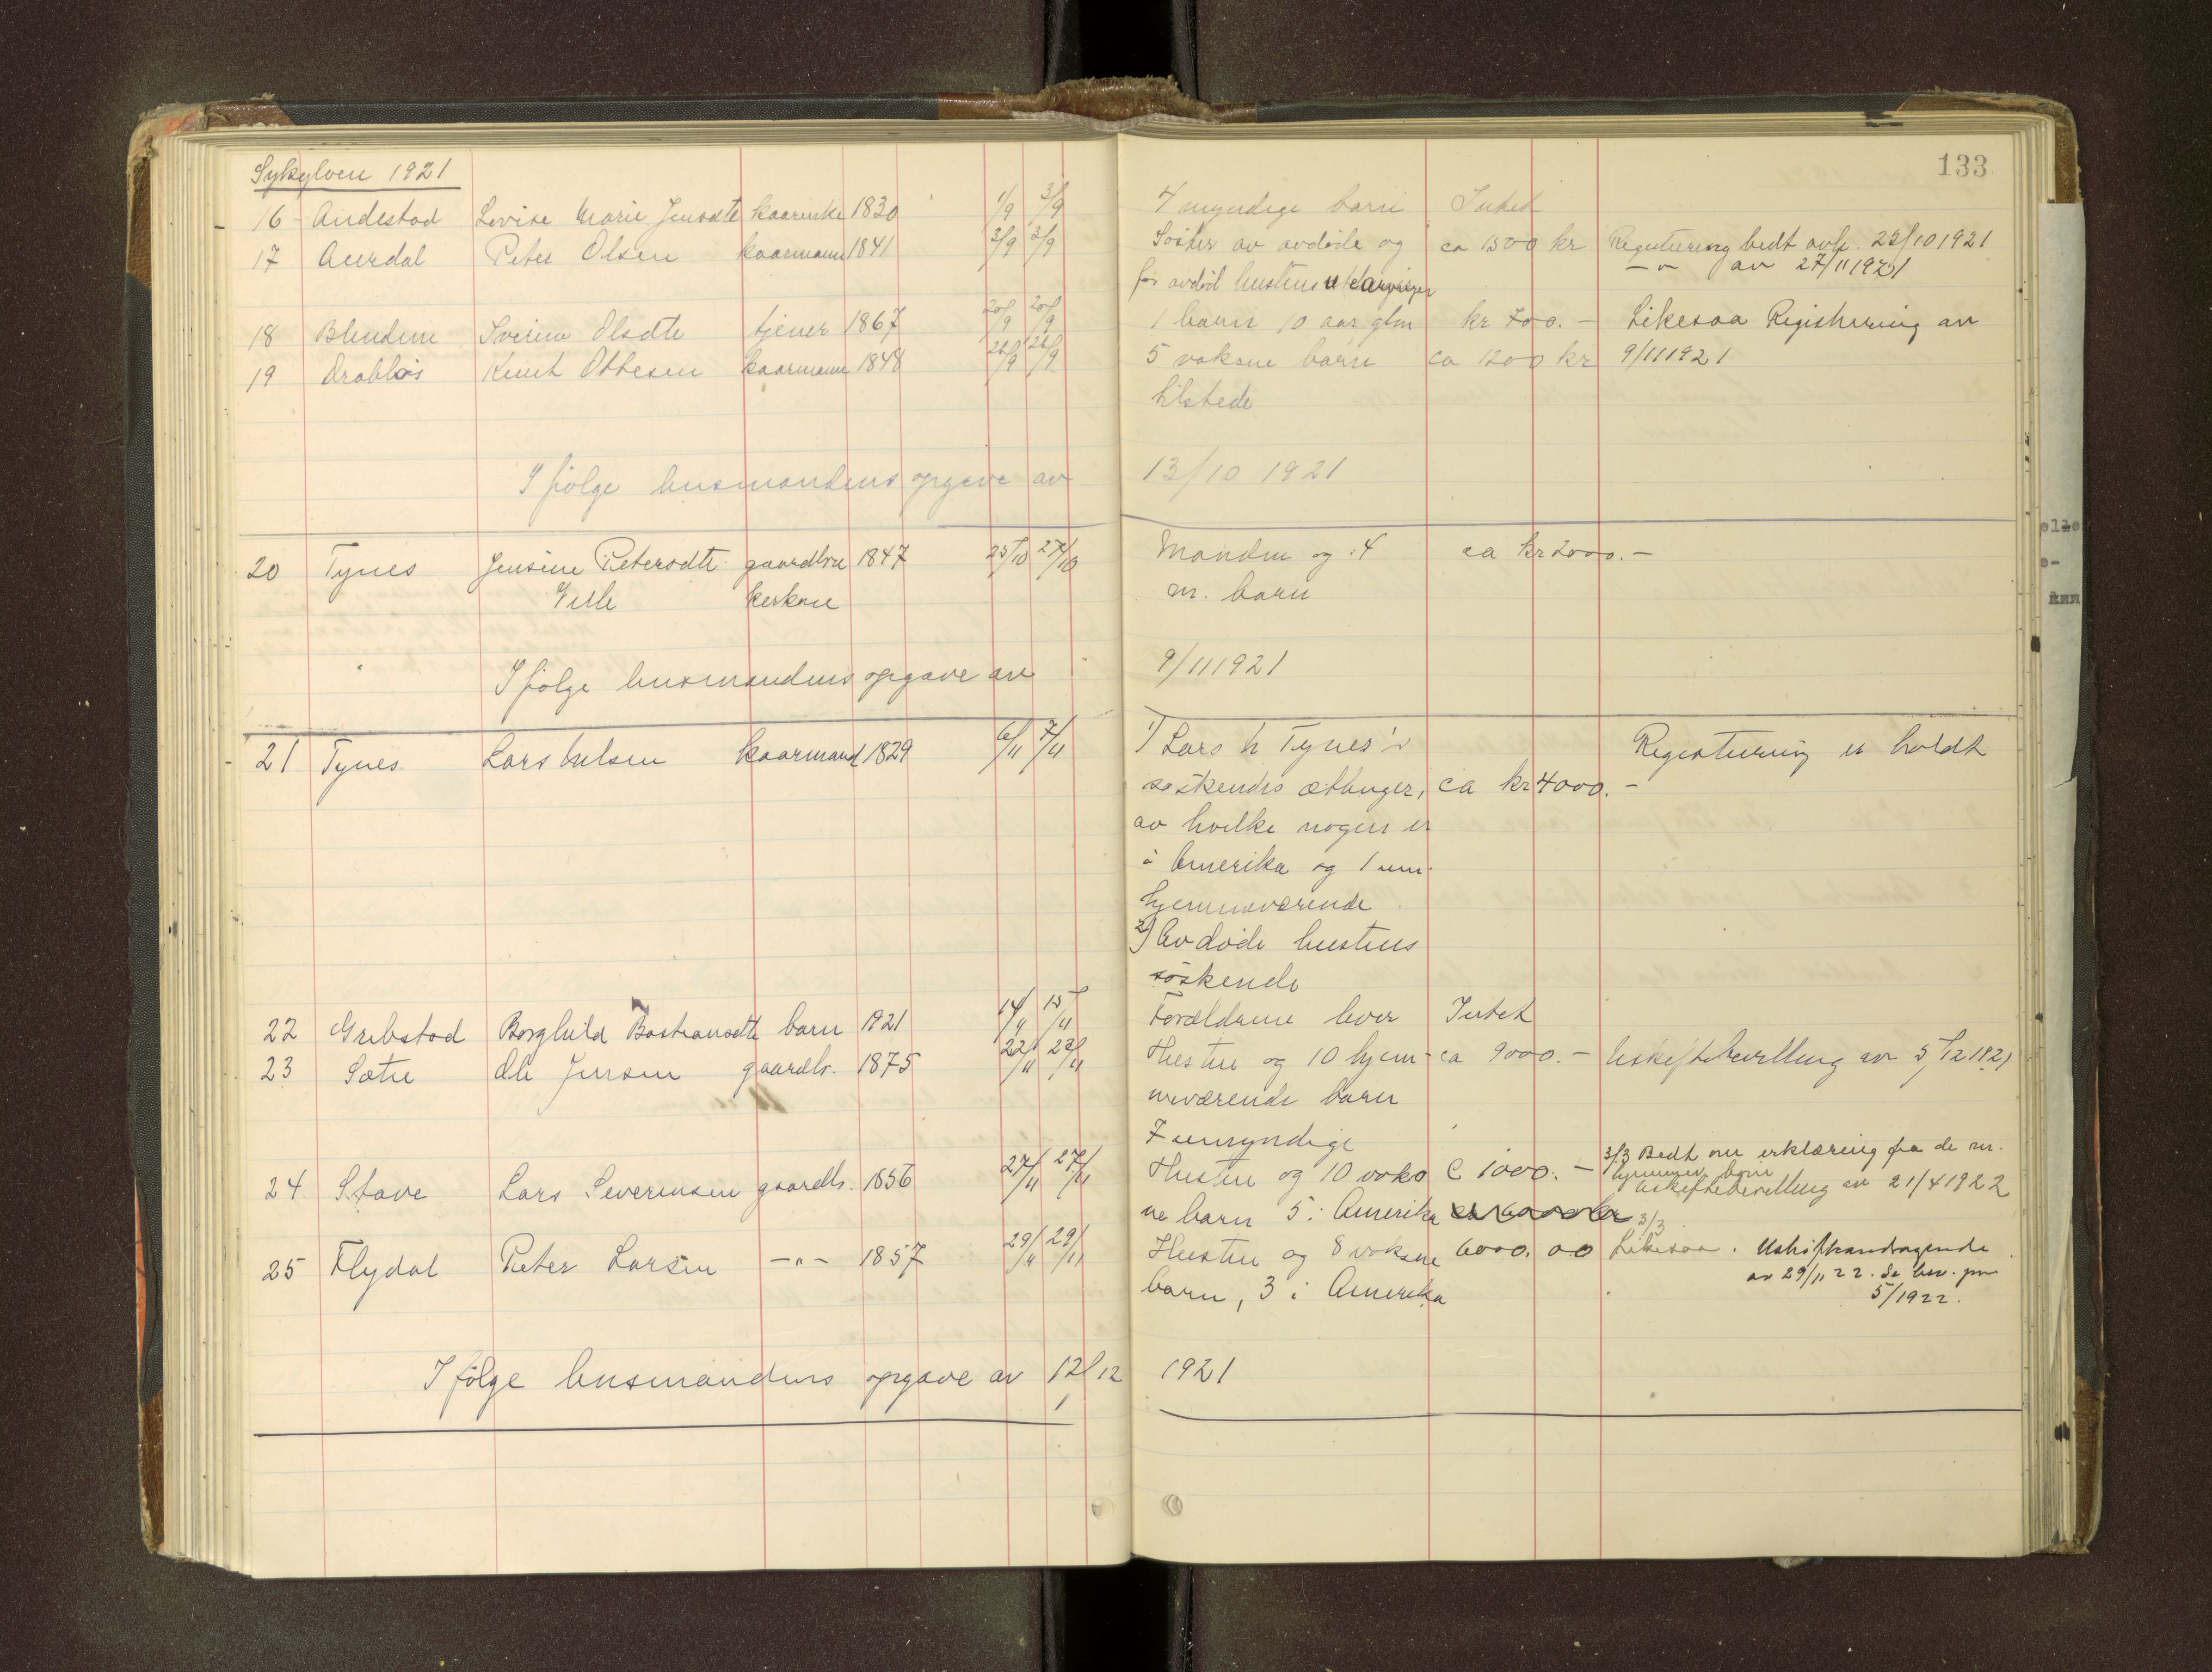 133
Sykylven 1921
16 Andestad Lovise Marie Jensdt kaarenke 1830 1/9 3/9 4 myndige barn Intet
17 Aurdal Peter Olsen kaarmann 1841 3/9 3/9 Søster av avdøde og ca 1500 kr Registrering bedt avh. 22/10 1921
for avdød hustrus utarvinger -"- av 27/11 1921
18 Blindem Iverine Olsdt tjener 1867 20/9 20/9 1 barn 10 aar glm kr 700.- Likesaa Registrering av
19 Drabløs Knut Ottesen kaarmann 1848 26/9 26/9 5 voksne barn ca 1200 kr 9/11 1921
tilstede
I følge lensmandens opgave av 13/10 1921
20 Tynes Jensine Petersdt gaardbr 1847 25/10 27/10 Manden og 4 ca kr 2000.-
m. barn
I følge lensmandens opgave av 9/11 1921
21 Tynes Lars Nilsen kaarmand 1829 6/11 7/11 1) Lars N Tynes's Registrering er holdt
søskendes ætlinger, ca kr 4000.-
av hvilke nogen er
i Amerika og 1 um.
hjemmeværende
2) Avdøde hustrus
søskende
22 Grebstad Borghild Bastiansdt barn 1921 14/11 15/11 Forældrene lever Intet
23 Sætre Ole Jensen gaardbr. 1875 22/11 22/11 Hustru og 10 hjem- ca 9000.- Uskiftebevilling av 5/12 1921
meværende barn
7 umyndige
3/3 Bedt om erklæring fra de m.
hjemmev. barn
24 Stave Lars Severinsen gaardbr. 1856 27/11 27/11 Hustru og 10 voks C 1000.- Uskiftebevilling av 21/4 1922
ne barn 5 i Amerika
3/3
25 Flydal Peter Larsen -"- 1857 29/11 29/11 Hustru og 8 voksne 6000.00 Likesaa. Uskifteandragende
barn, 3 i Amerika av 29/11 22. Se
5/1922.
I følge lensmandens opgave av 12/12 1921